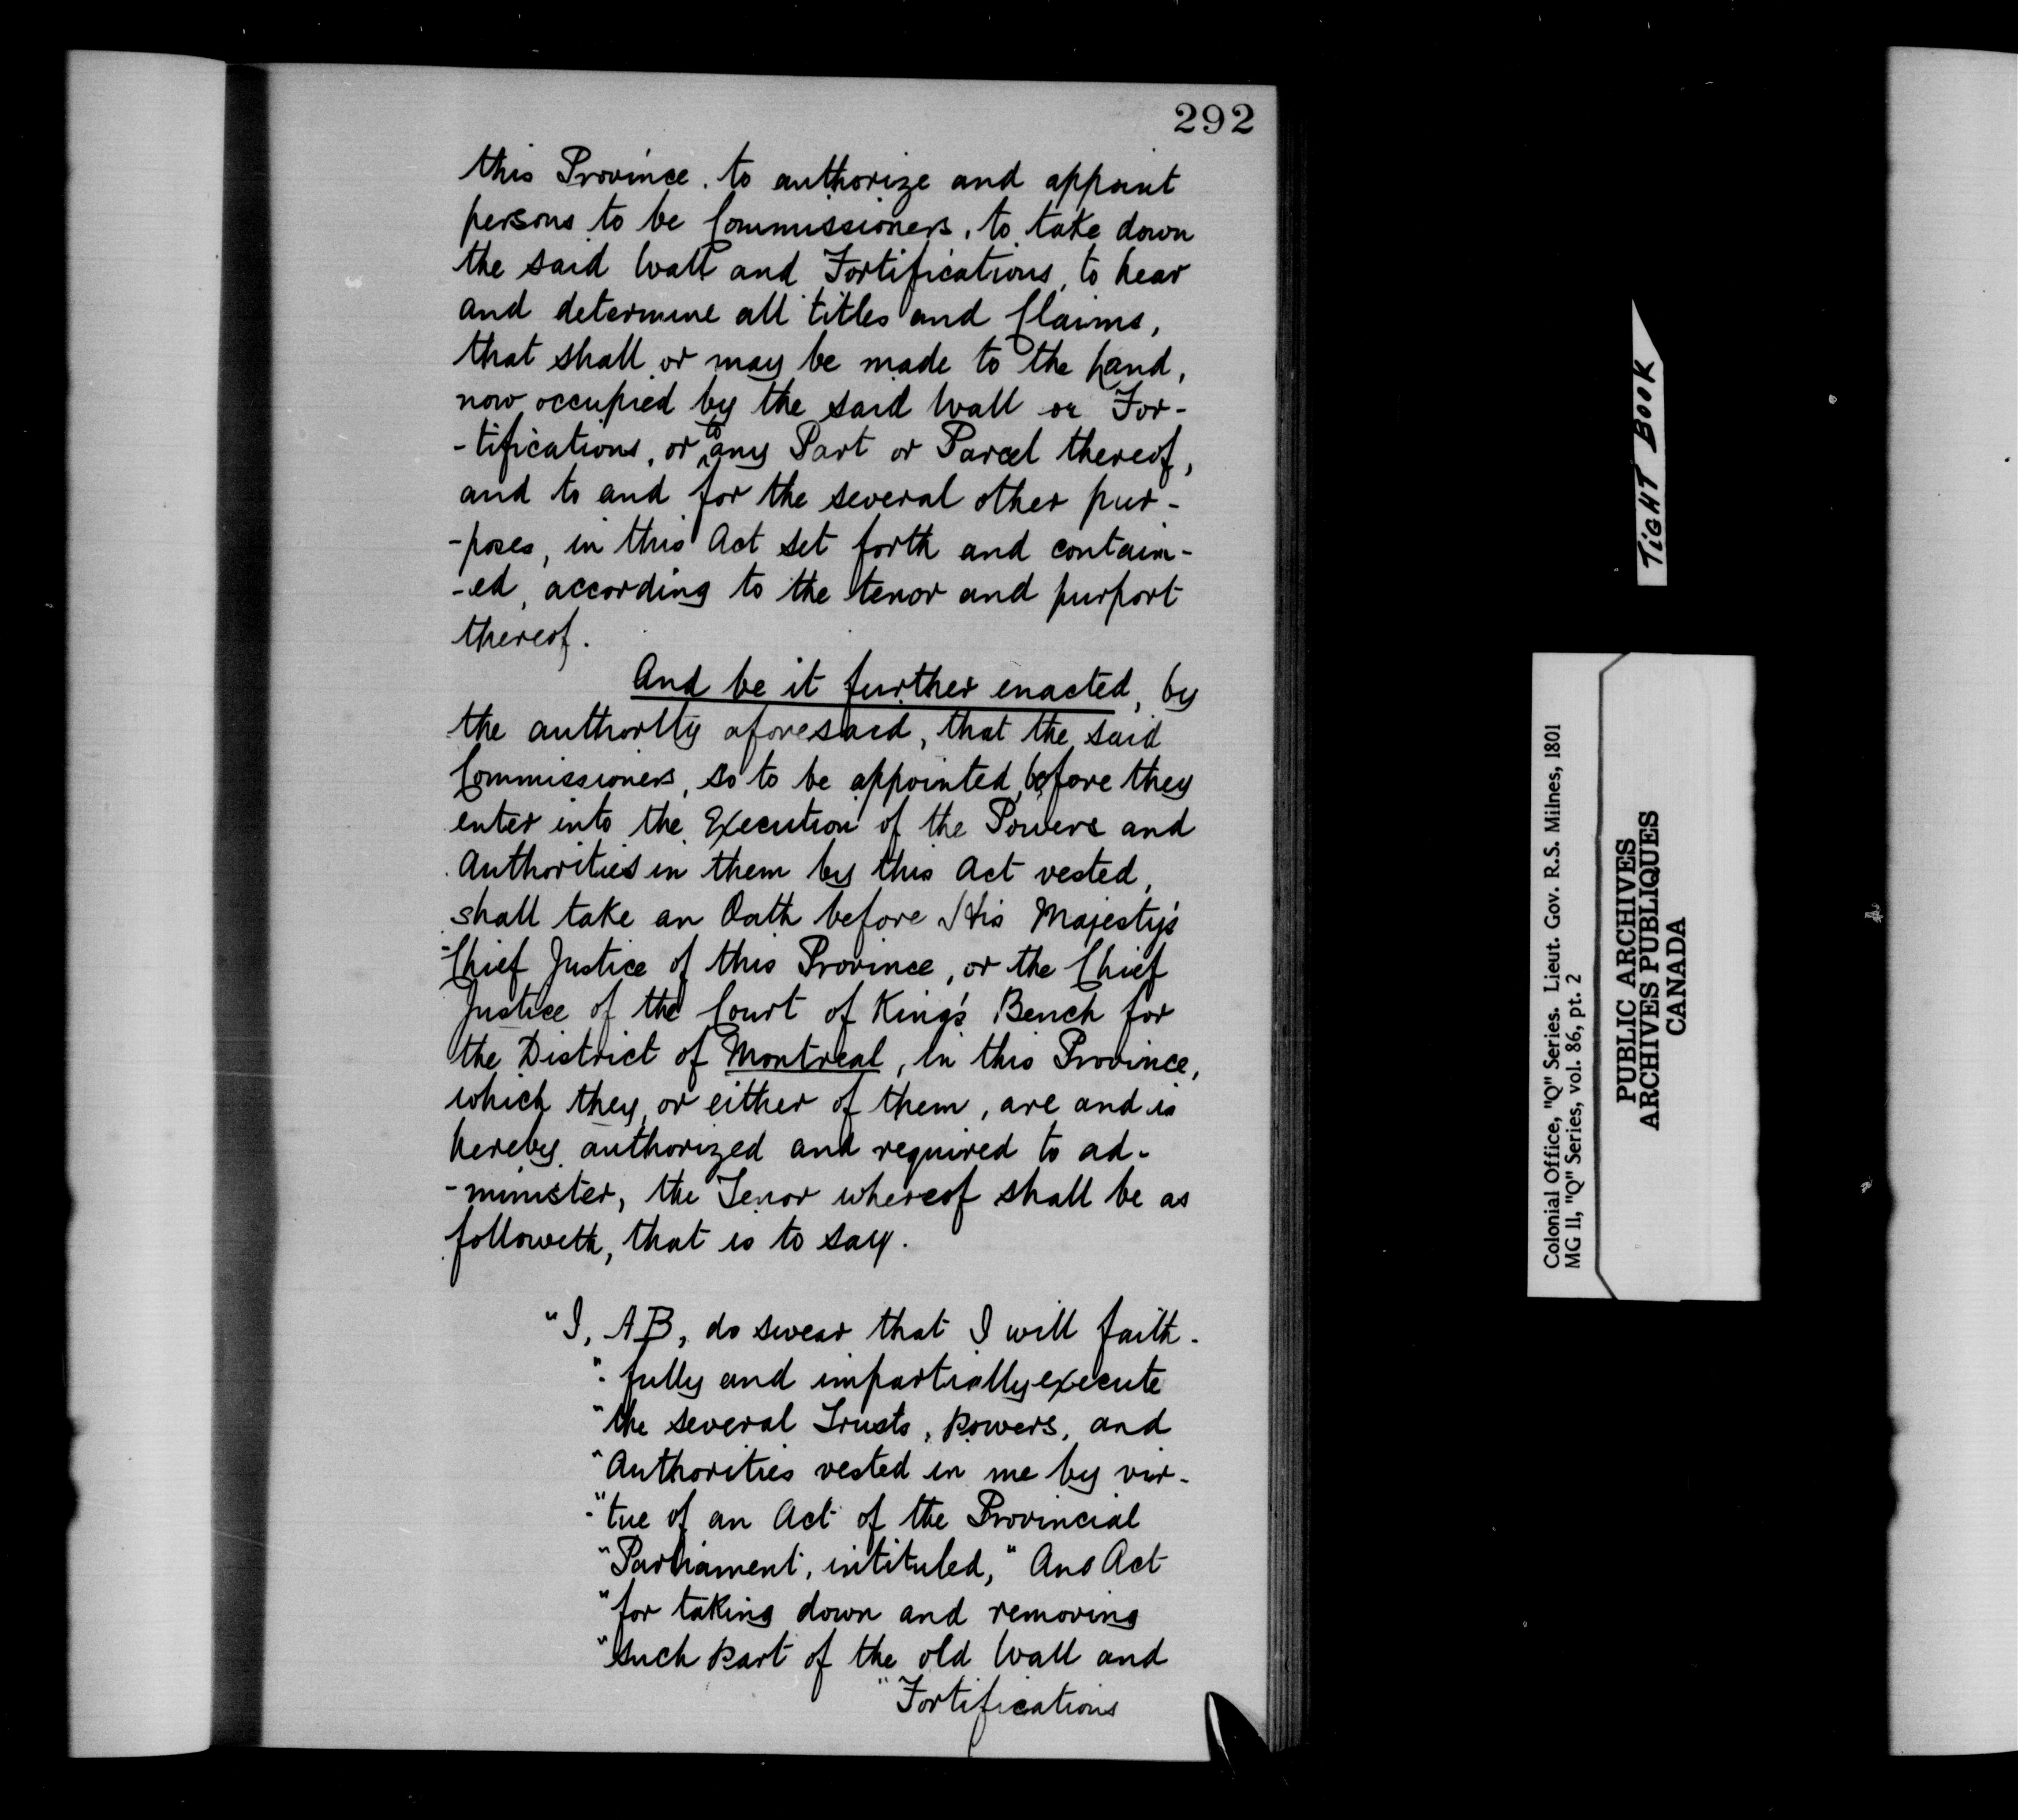 292
this Province, to authorize and appoint
persons to be Commissioners, to take down
the said Wall and Fortifications, to hear
and determine all titles and Claims,
that shall or may be made to the Land,
now occupied by the said Wall or For-
-tifications, or to any Part or Parcel thereof,
and to and for the several other pur-
-poses, in this Act set forth and contain-
-ed, according to the tenor and purport
thereof.
And be it further enacted, by
the authority aforesaid, that the said
Commissioners, so to be appointed, before they
enter into the Execution of the Powers and
Authorities in them by this Act vested,
shall take an Oath before His Majesty's
Chief Justice of this Province, or the Chief
Justice of the Court of King's Bench for
the District of Montreal, in this Province,
which they, or either of them, are and is
hereby authorized and required to ad-
-minister, the Tenor whereof shall be as
followeth, that is to say.
"I, AB, do swear that I will faith-
"-fully and impartially execute
"the several Trusts, Powers, and
"Authorities vested in me by vir-
"-tue of an Act of the Provincial
"Parliament, intituled, "And Act
"for taking down and removing
"such part of the old Wall and
"Fortifications
TIGHT BOOK
Colonial Office, "Q" Series. Lieut. Gov. R.S. Milnes, 1801
MG 11, "Q" Series, vol. 86, pt. 2
PUBLIC ARCHIVES
ARCHIVES PUBLIQUES
CANADA